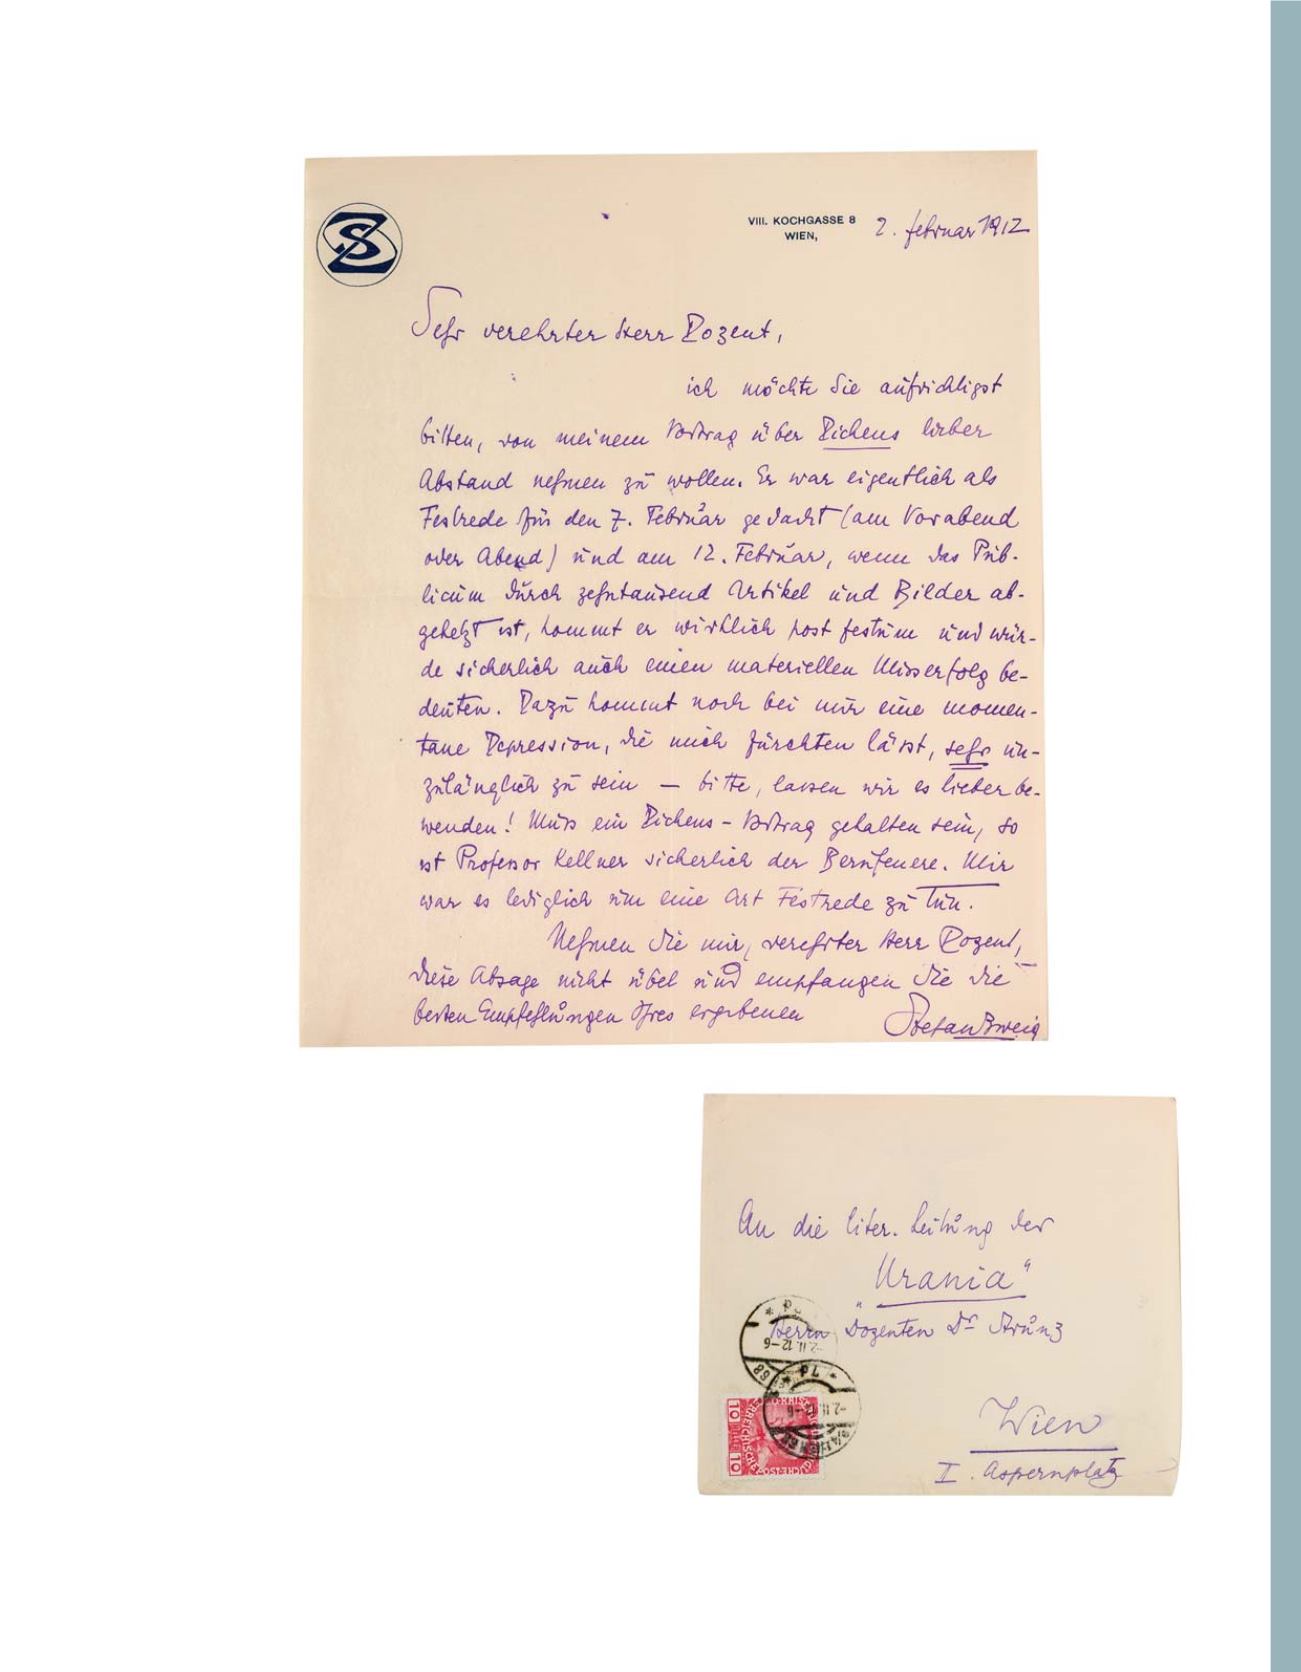 SZ
VIII. KOCHGASSE 8
WIEN,
2. Februar 1912
Sehr verehrter Herr Dozent,
ich möchte Sie aufrichtigst
bitten, von meinem Vortrag über Dickens lieber
Abstand nehmen zu wollen. Er war eigentlich als
Festrede für den 7. Februar gedacht (am Vorabend
oder Abend) und am 12. Februar, wenn das Pub-
licum durch zehntausend Artikel und Bilder ab-
gehetzt ist, kommt er wirklich post festum und wür-
de sicherlich auch einen materiellen Misserfolg be-
deuten. Dazu kommt noch bei mir eine momen-
tane Depression, die mich fürchten lässt, sehr un-
zulänglich zu sein — bitte, lassen wir es lieber be-
wenden! Muss ein Dickens-Vortrag gehalten sein, so
ist Professor Kellner sicherlich der Berufenere. Mir
war es lediglich um eine Art Festrede zu tun.
Nehmen Sie mir, verehrter Herr Dozent,
diese Absage nicht übel und empfangen Sie die
besten Empfehlungen Ihres ergebenen
Stefan Zweig
An die liter. Leitung der
„Urania“
Herrn Dozenten Dr Strunz
Wien
I. Aspernplatz
10
10